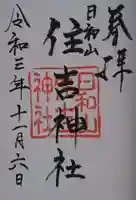 奉拝
日和山
住吉神社
日和山
神社
令和三年十一月六日